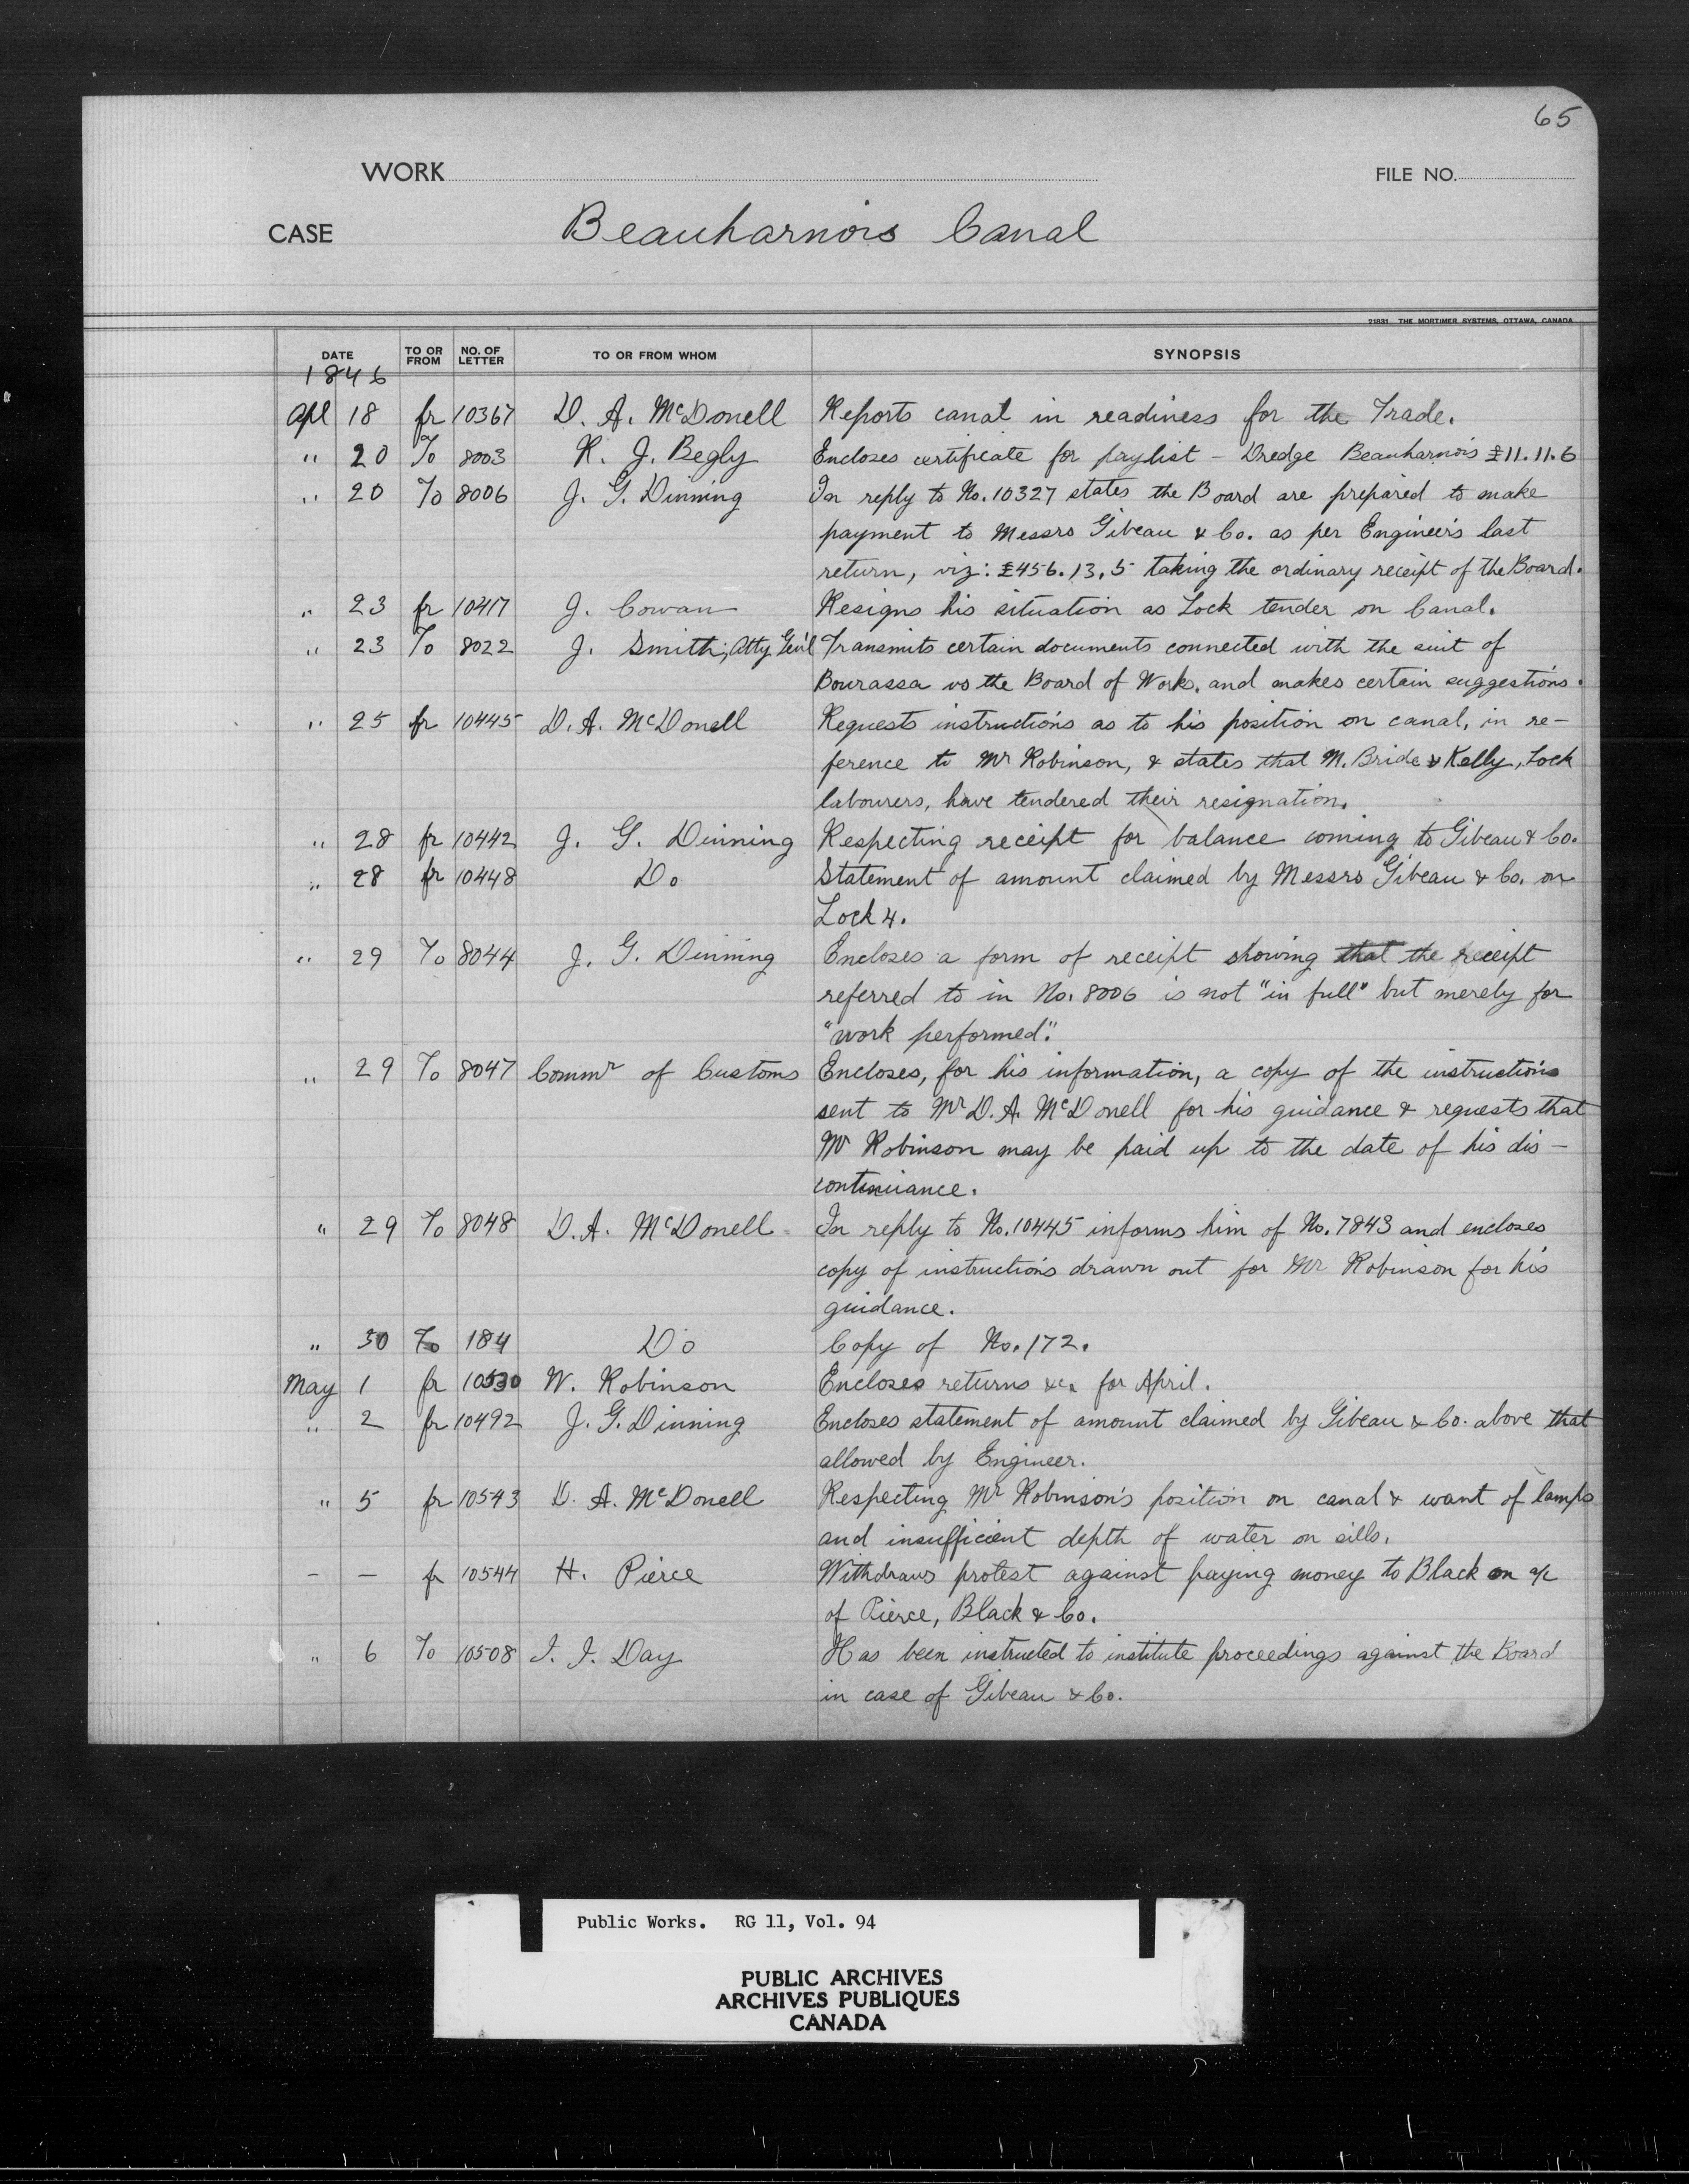 65
WORK FILE NO.
CASE Beauharnois Canal
21831 THE MORTIMER SYSTEMS, OTTAWA, CANADA
DATE TO OR FROM NO. OF LETTER TO OR FROM WHOM SYNOPSIS
1846
Apl 18 fr 10367 D. A. McDonell Reports canal in readiness for the Trade.
" 20 To 8003 R. J. Begly Encloses certificate for paylist – Dredge Beauharnois £11.11.6
" 20 To 8006 J. G. Dinning In reply to No. 10327 states the Board are prepared to make
payment to Messrs Gibeau & Co. as per Engineer's last
return, viz: £456.13.5 taking the ordinary receipt of the Board.
" 23 fr 10417 J. Cowan Resigns his situation as Lock tender on Canal.
" 23 To 8022 J. Smith, Atty Gen'l Transmits certain documents connected with the suit of
Bourassa vs the Board of Works, and makes certain suggestions.
" 25 fr 10445 D. A. McDonell Requests instructions as to his position on canal, in re-
ference to Mr Robinson, & states that M. Bride & Kelly, Lock
labourers, have tendered their resignation.
" 28 fr 10442 J. G. Dinning Respecting receipt for balance coming to Gibeau & Co.
" 28 fr 10448 Do Statement of amount claimed by Messrs Gibeau & Co. on
Lock 4.
" 29 To 8044 J. G. Dinning Encloses a form of receipt showing that the receipt
referred to in No. 8006 is not "in full" but merely for
"work performed".
" 29 To 8047 Commr of Customs Encloses, for his information, a copy of the instructions
sent to Mr D. A. McDonell for his guidance & requests that
Mr Robinson may be paid up to the date of his dis-
continuance.
" 29 To 8048 D. A. McDonell In reply to No. 10445 informs him of No. 7843 and encloses
copy of instructions drawn out for Mr Robinson for his
guidance.
" 30 To 184 Do Copy of No. 172.
May 1 fr 10530 W. Robinson Encloses returns &c. for April.
" 2 fr 10492 J. G. Dinning Encloses statement of amount claimed by Gibeau & Co. above that
allowed by Engineer.
" 5 fr 10543 D. A. McDonell Respecting Mr Robinson's position on canal & want of lamps
and insufficient depth of water on sills.
– – fr 10544 H. Pierce Withdraws protest against paying money to Black on a/c
of Pierce, Black & Co.
" 6 To 10508 I. I. Day Has been instructed to institute proceedings against the Board
in case of Gibeau & Co.
Public Works. RG 11, Vol. 94
PUBLIC ARCHIVES
ARCHIVES PUBLIQUES
CANADA